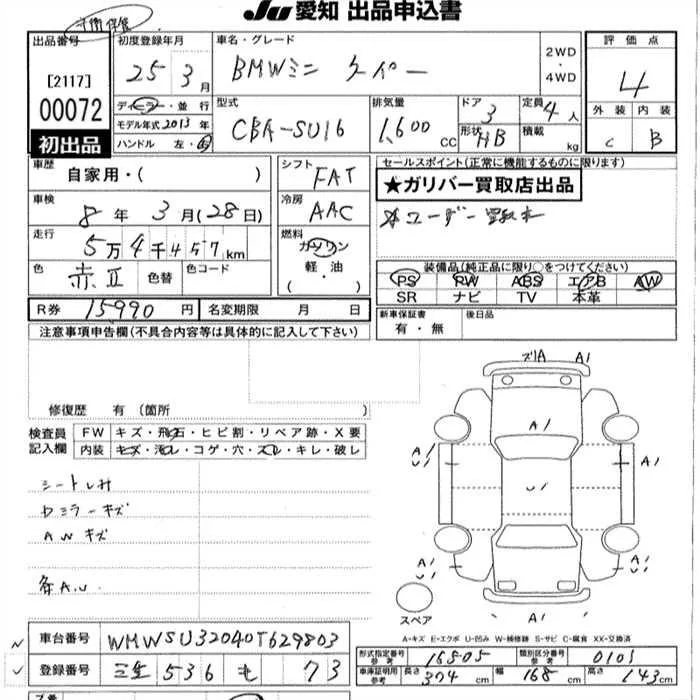 Ju 愛知 出品申込書
出品番号
[2117]
00072
初出品
初度登録年月
25年 3月
ディーラー・並 行
モデル年式 2013 年
ハンドル 左・右
車名・グレード
BMWミニ クーパー
2WD
・
4WD
型式
CBA-SU16
排気量
1,600 CC
ドア
3
形状 HB
定員
4人
積載
kg
評 価 点
4
外 装 内 装
C B
車歴
自家用・( )
車検
8年 3月(28日)
走行
5万4千457km
色
赤II 色替 色コード
シフト
FAT
冷房
AAC
燃料
ガソリン
軽・油
( ・ )
セールスポイント(正常に機能するものに限ります)
★ガリバー買取店出品
装備品(純正品に限り○をつけてください)
PS PW ABS エアB AW
SR ナビ TV 本革
R券 15990 円 名変期限 月 日
新車保証書
有・無
後日品
注意事項申告欄(不具合内容等は具体的に記入して下さい)
修復歴 有(箇所 )
検査員
記入欄
FW キズ・飛石・ヒビ割・リペア跡・X要
内装 キズ・汚レ・コゲ・穴・スレ・キレ・破レ
シートしみ
ドミラーキズ
AWキズ
各A.U
ズリA A1
A1
A1
U1
U1
A1
A1
U1
A1
U1
A1
A1
スペア
A-キズ E-エクボ U-凹み W-補修跡 S-サビ C-腐食 XX-交換済
車台番号 WMWSU32040T629803
登録番号 三重 536 も 73
形式指定番号
参考
16505
類別区分番号
参考
0101
車庫証明用
参考
長さ 374 cm 幅 168 cm 高さ 143 cm